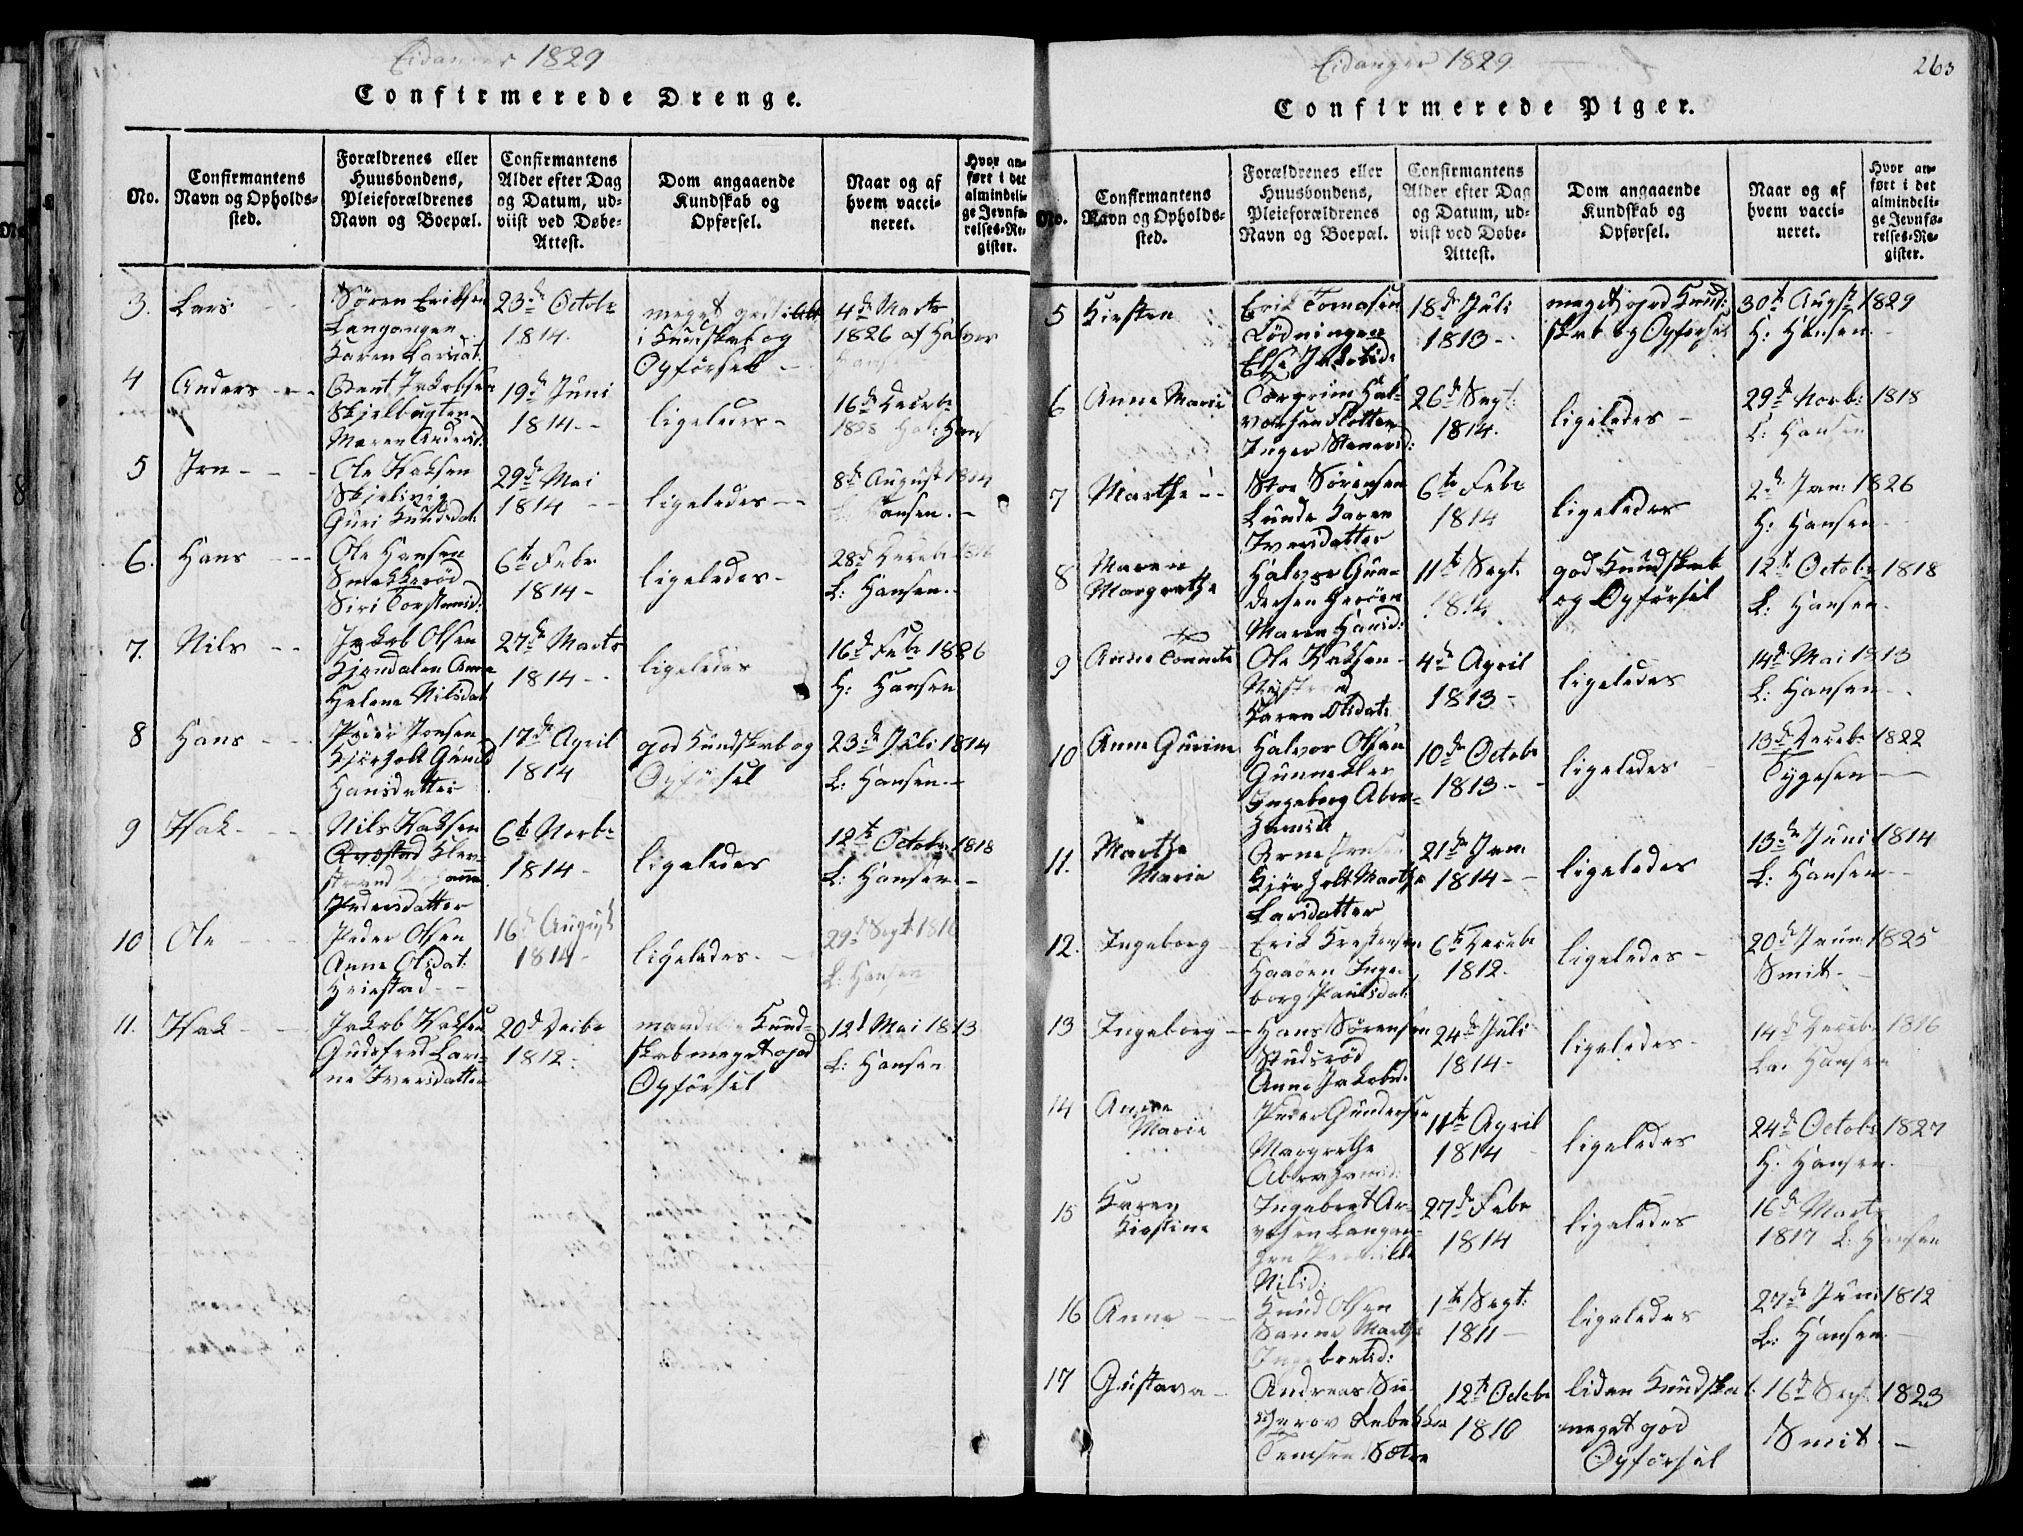 Eidanger 1829
Confirmerede Drenge.
No.
Confirmantens
Navn og Opholds-
sted.
Forældrenes eller
Huusbondens,
Pleieforældrenes
Navn og Boepæl.
Confirmantens
Alder efter Dag
og Datum, ud-
viist ved Døbe-
Attest.
Dom angaaende
Kundskab og
Opførsel.
Naar og af
hvem vacci-
neret.
Hvor an-
ført i det
almindeli-
ge Jevnfø-
relses-Re-
gister.
3. Lars
Søren Eriksen
Langangen
Karen Larsdat.
23de Octobr
1814.
meget god
i Kundskab og
Opførsel
4de Marts
1826 af Halvor
4 Anders
Bent Jakobsen
Skjelbugten
Maren Andersd.
19de Juni
1814
ligeledes
16de Decebr
1828 Hal: Hans
5 Jrn
Ole Isaksen
Skjelsvig
Guri Knudsdat:
29de Mai
1814
ligeledes
8de August 1814
L: Hansen.
6. Hans
Ole Hansen
Smekkerød
Siri Torstensd:
6te Febr
1814
ligeledes
28de Decebr
L: Hansen.
7. Nils
Jakob Olsen
Kjendalen Anne
Helene Nilsdat
27de Marts
1814
ligeledes
16de Febr 1826
H: Hansen
8 Hans
Peder Jonsen
Kjørholt Gunild
Hansdatter
17de April
1814
god Kundskab og
Opførsel
23de Juli 1814
L: Hansen
9 Isak
Nils Isaksen
Kler-
strand Johanne
Pedersdatter
6te Novbr
1814
ligeledes
12te Octobr 1818
L: Hansen
10 Ole
Peder Olsen
Anne Olsdat:
Heiestad
16de August
1814
ligeledes.
29de Sept 1816
L: Hansen
11. Isak
Jakob Isaksen
Gudsfred Lar-
ne Iversdatter
20de Decbr
1812.
maadelig Kund-
skab meget god
Opførsel
12te Mai 1813
L: Hansen
Eidanger 1829
263
Confirmerede Piger.
No.
Confirmantens
Navn og Opholds-
sted.
Forældrenes eller
Huusbondens,
Pleieforældrenes
Navn og Boepæl.
Confirmantens
Alder efter Dag
og Datum, ud-
viist ved Døbe-
Attest.
Dom angaaende
Kundskab og
Opførsel.
Naar og af
hvem vacci-
neret.
Hvor an-
ført i det
almindeli-
ge Jevnfø-
relses-Re-
gister.
5 Kirsten
Erik Tomasen
Lødningen
Else Jakobsd:
18de Juli
1813
meget god Kund-
skab og Opførsel
30te Augst 1829
H: Hansen
6 Anne Marie
Torgrim Hal-
vorsen Flotten
Inger Stenersd:
26de Sept:
1814.
ligeledes
29de Novb: 1818
L: Hansen
7 Marthe
Stor Sørensen
Lunde Karen
Iversdatter
6te Febr
1814
ligeledes
2de Jan: 1826
H: Hansen
8 Maren
Margrethe
Halvor Gun-
dersen Herøen
Maren Hansd:
11te Sept.
1814
god Kundskab
og Opførsel
12te Octobr 1818
L: Hansen
9 Anne Tonnete
Ole Isaksen
Nystrand
Karen Olsdat:
4de April
1813
ligeledes
14de Mai 1813
L: Hansen
10 Anne Gurine
Halvor Olsen
Gunneklev
Ingeborg Abra-
hamsd:
10de Octobr
1813
ligeledes
13de Decebr 1822
Tygesen
11. Marthe
Maria
Arne Jensen
Kjørholt Marthe
Larsdatter
21de Jan.
1814
ligeledes
13de Juni 1814
L: Hansen
12. Ingeborg
Erik Krestensen
Haaøen Inge-
borg Paulsdat:
6te Decebr
1812.
ligeledes
20de Jan: 1825
Smit
13 Ingeborg
Hans Sørensen
Studsrød
Anne Jakobsd.
24de Juli
1814
ligeledes
14de Decebr 1816
La: Hansen
14 Anne
Marie
Peder Gundersen
Margrethe
Abrahamsd:
11te April
1814
ligeledes
24de Octobr 1827
H: Hansen.
15 Karen
Kirstine
Ingebret Ar-
vesen Langan-
gen Pernille
Nilsd:
27de Febr
1814
ligeledes
16de Marts
1817 L: Hansen
16 Anne
Knud Olsen
Sanne Marthe
Ingebretsd:
1te Sept:
1811
ligeledes
27de Juni 1812
L: Hansen
17 Gustava
Andreas
Rebekka
12te Octobr
1810
liden Kundskab:
meget god
Opførsel
16de Sept. 1823
Smit.